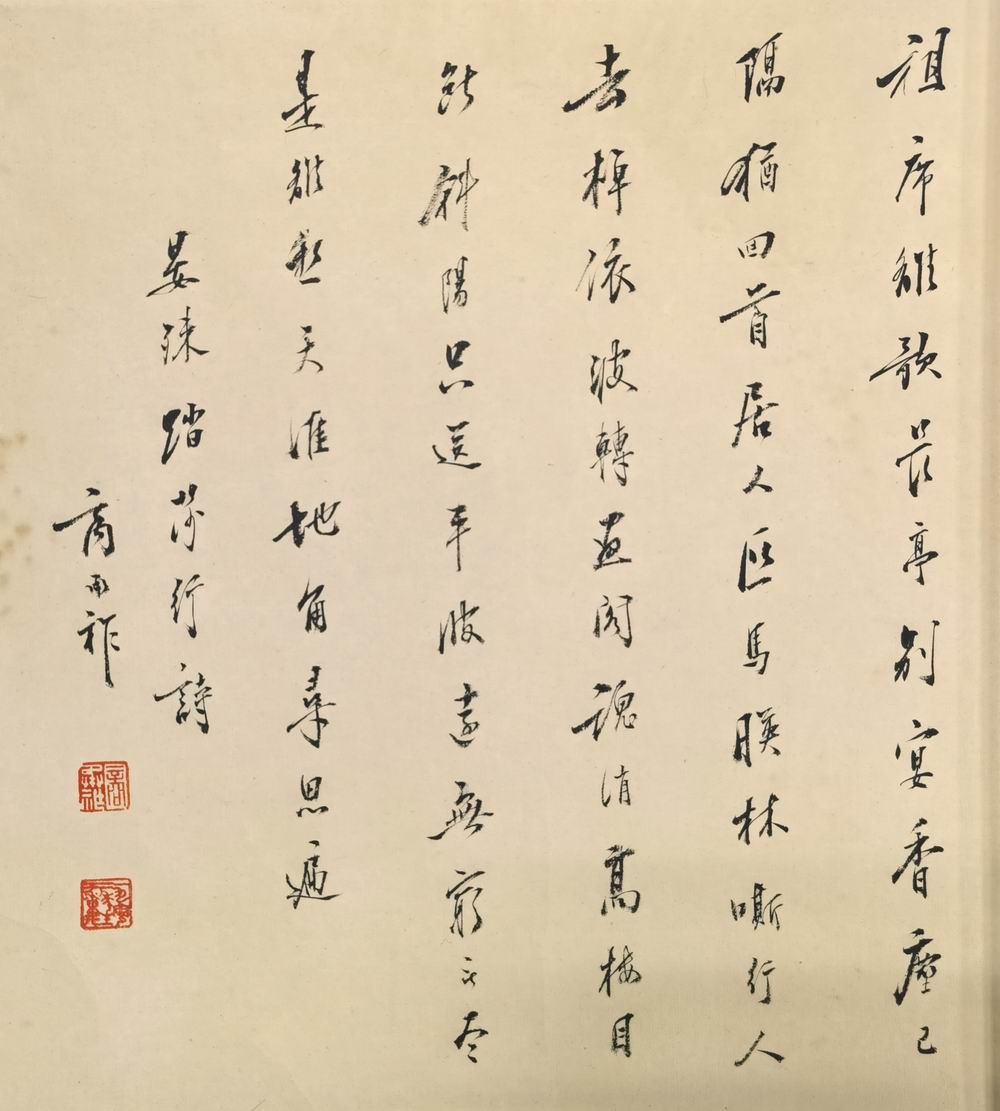 祖席離歌長亭別宴香塵已
隔猶回首居人匹馬暎林嘶行人
去棹依波轉畫閣魂消高樓目
斷斜陽只送平波遠無窮无尽
是離愁天涯地角尋思遍
晏殊踏莎行詩
商承祚